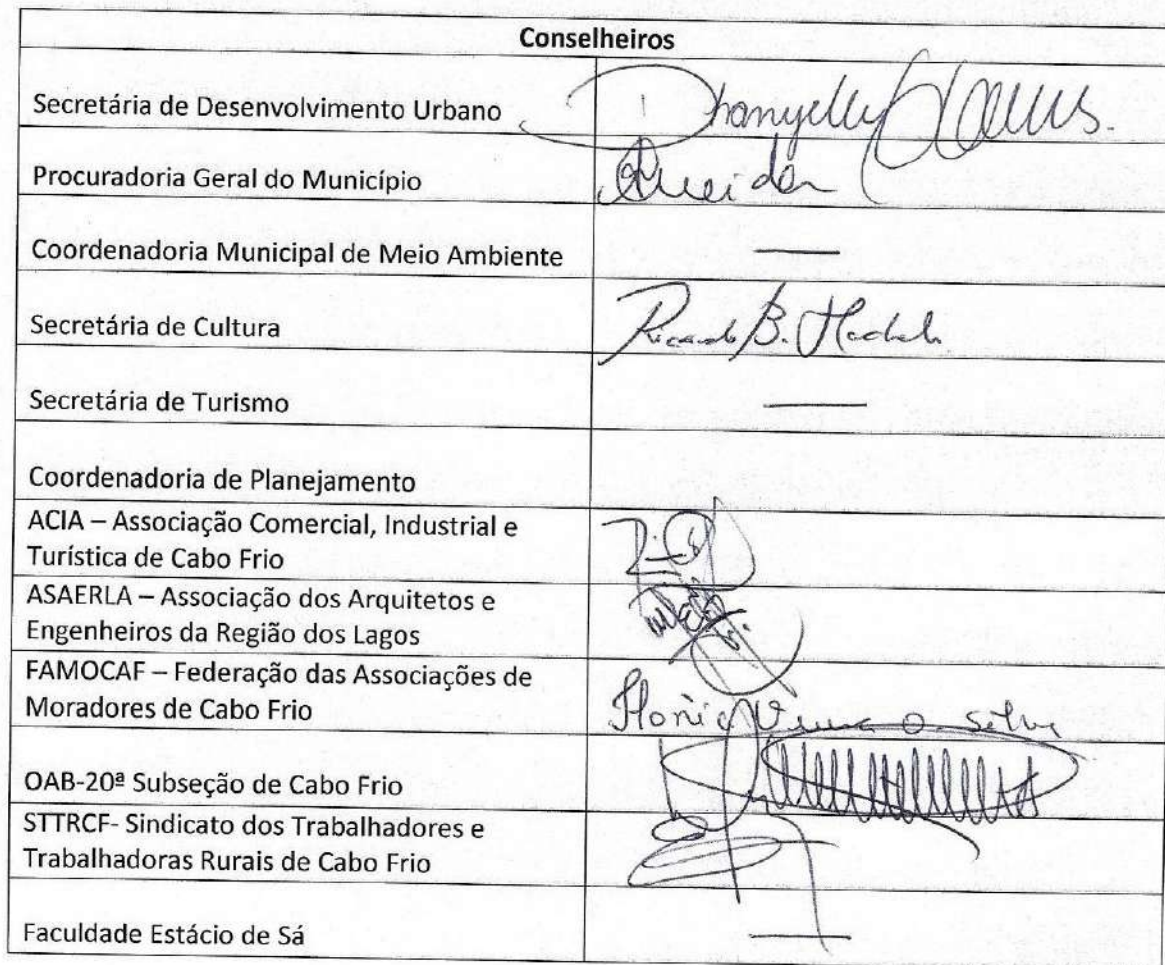 Conselheiros
Secretária de Desenvolvimento Urbano
Procuradoria Geral do Município
Almeida
Coordenadoria Municipal de Meio Ambiente
Secretária de Cultura Ricardo B. Machado
Secretária de Turismo
Coordenadoria de Planejamento
ACIA – Associação Comercial, Industrial e
Turística de Cabo Frio
ASAERLA – Associação dos Arquitetos e
Engenheiros da Região dos Lagos
FAMOCAF – Federação das Associações de
Moradores de Cabo Frio O. Silva
OAB-20ª Subseção de Cabo Frio
STTRCF- Sindicato dos Trabalhadores e
Trabalhadoras Rurais de Cabo Frio
Faculdade Estácio de Sá